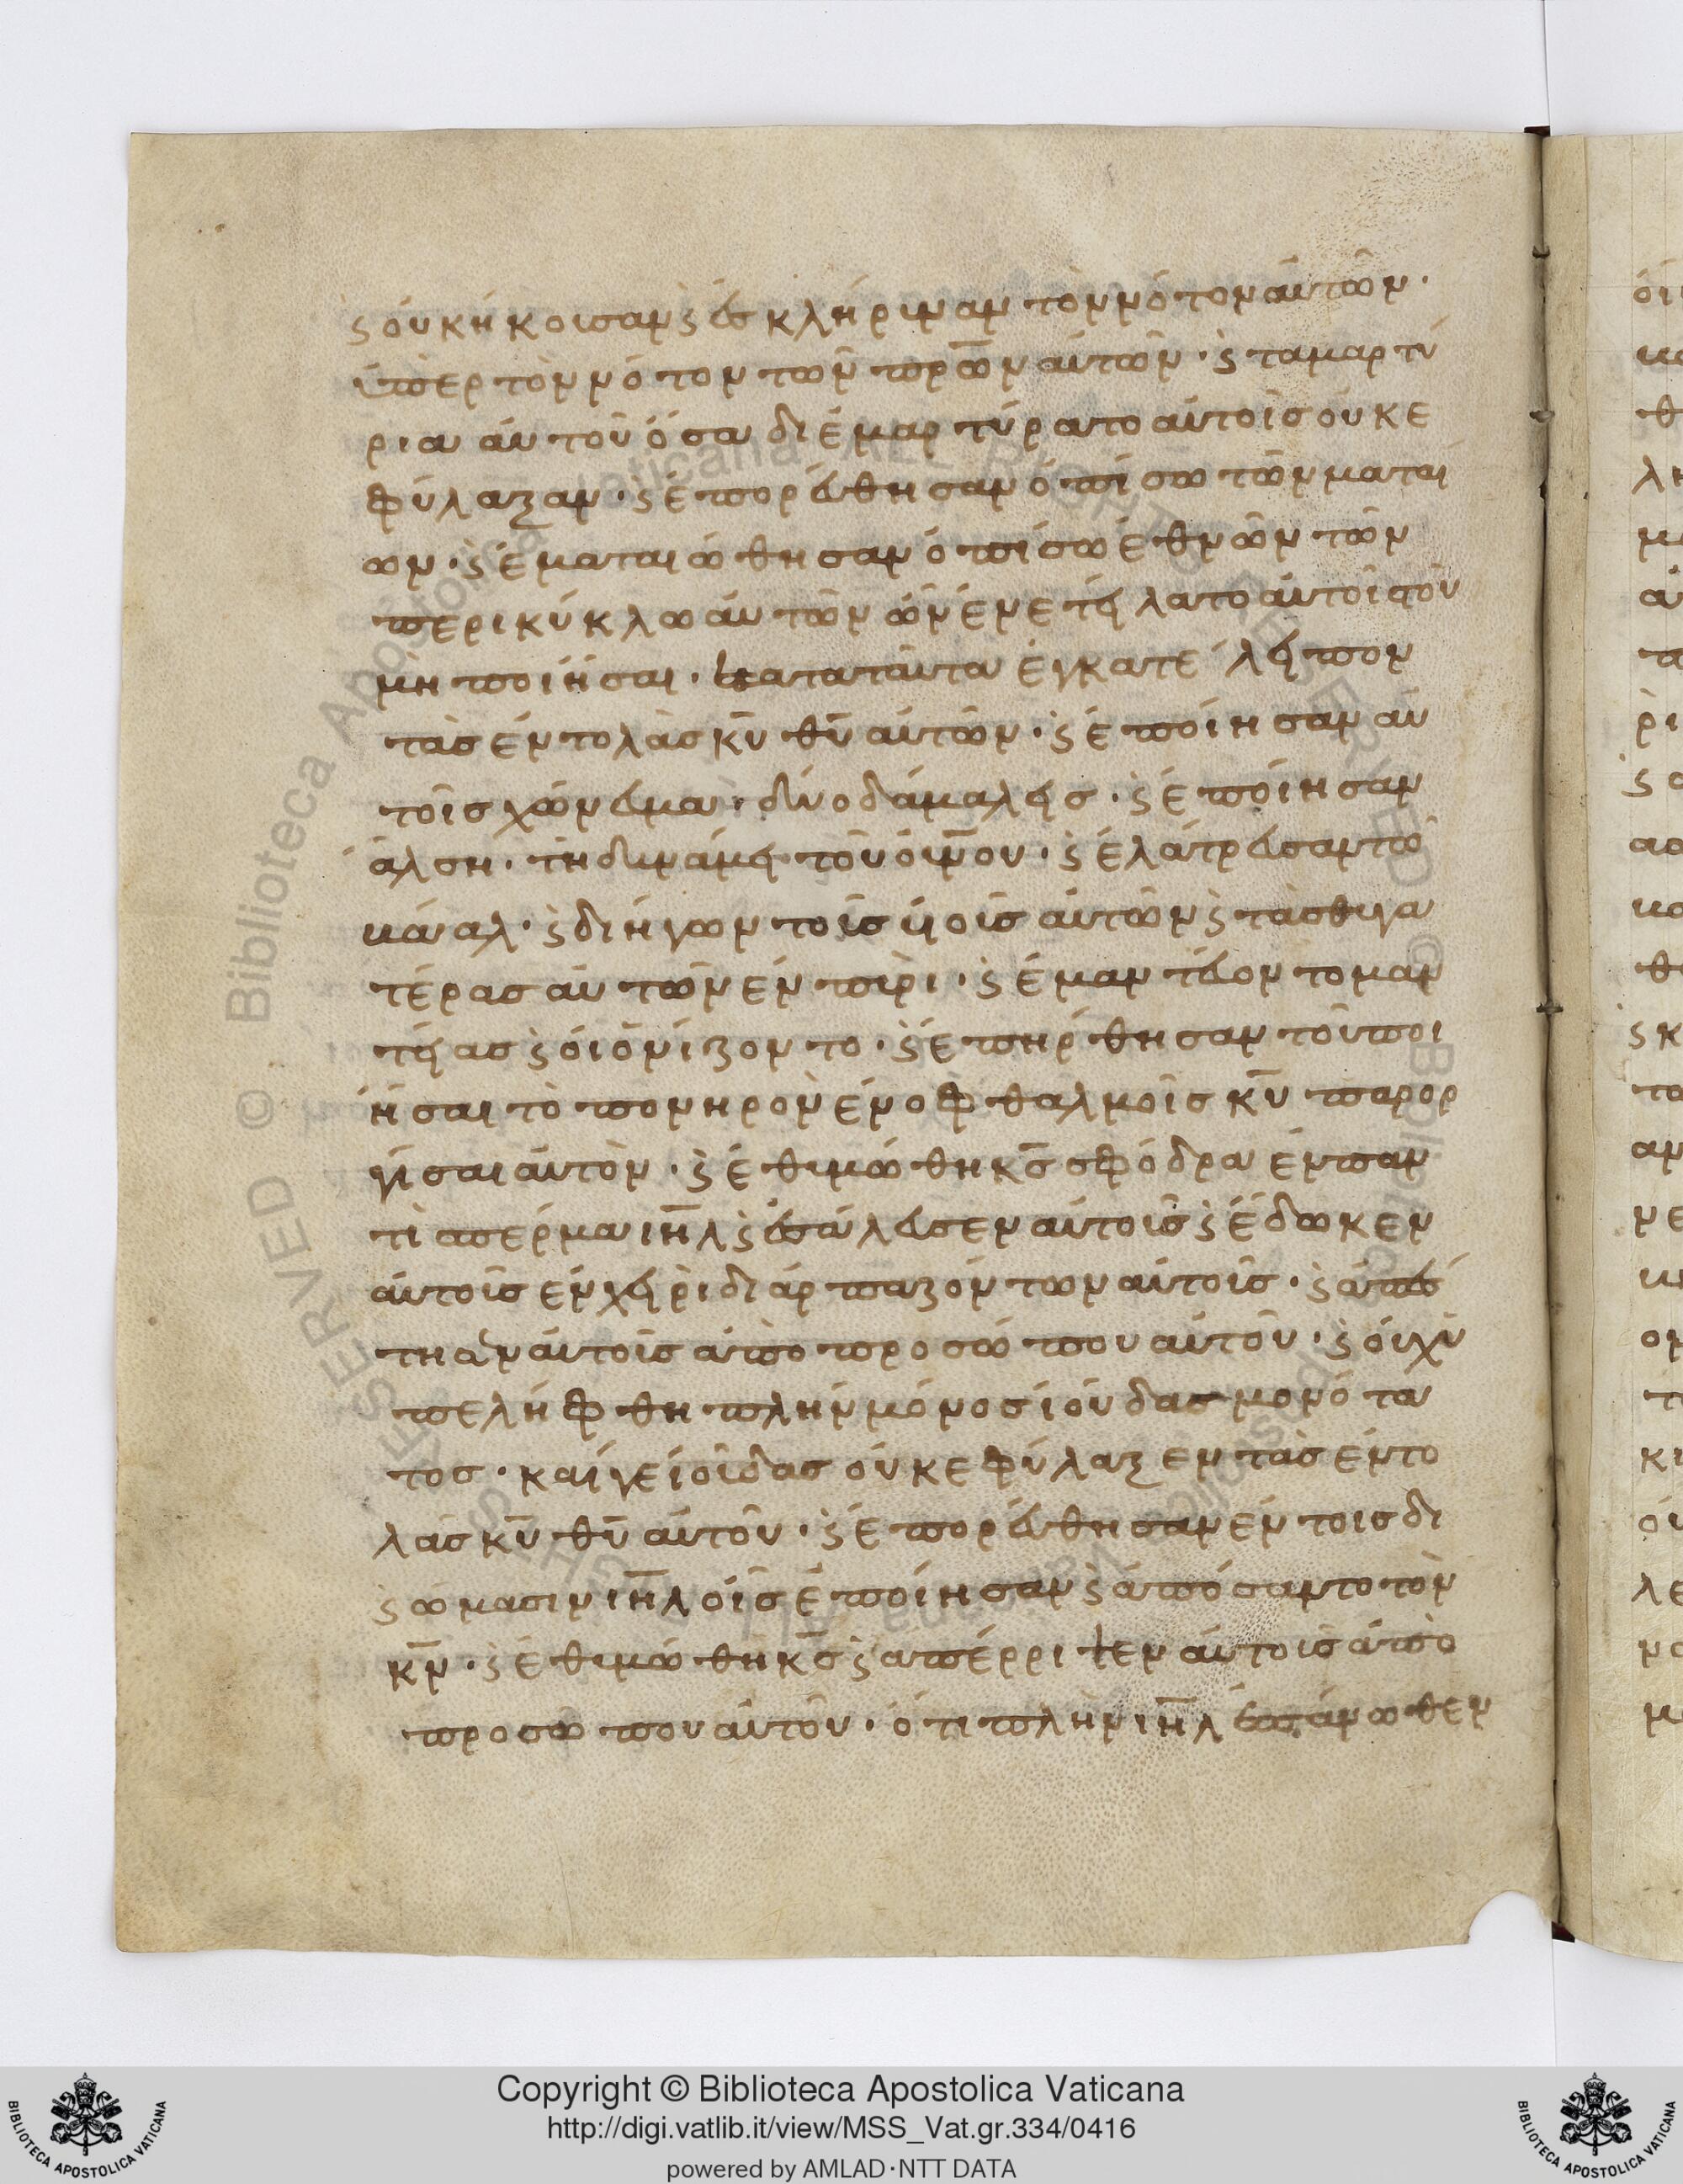 ϛ οὐκ ἠκοισαν ϛ ἐσκλήρυναν τὸν νότον αὐτῶν·
ὑπὲρ τὸν νότον τῶν πρ̅ων αὐτῶν· ϛ τα μαρτύ
ρια αὐτοῦ ὅσα διεμαρτύρατο αὐτοῖς οὐκ ε
φύλαξαν· ϛ ἐπορεύθησαν ὀπίσω τῶν ματαί
ων· ϛ ἐματαιώθησαν ὀπίσω ἐθνῶν τῶν
περικύκλω αὐτῶν ὧν ἐνετείλατο αὐτοῖς τοῦ
μὴ ποιῆσαι· κατα ταῦτα ἐγκατέλειπον
τὰς ἐντολὰς κ̅υ θ̅υ αὐτῶν· ϛ ἐποίησαν αὐ
τοῖς χώνευμα· δύο δάμαλεις· ϛ ἐποίησαν
ἄλση· τῆ δυνάμει τοῦ οὐν̅ου· ϛ ἐλάτρευσαν τῶ
βάαλ· ϛ διῆγων τοῖς υἱοῖς αὐτῶν ϛ τὰς θυγα
τέρας αὐτῶν ἐν πυρὶ· ϛ ἐμαντεύον το μαν
τείας ϛ οἰονίζοντο· ϛ ἐπηρθησαν τοῦ ποι
ῆσαι τὸ πονηρον ἐν οφθαλμοῖς κ̅υ παρορ
γίσαι αὐτὸν· ϛ ἐθυμώθη κ̅ς σφόδρα ἐν παν
τὶ σπέρμα ιη̅λ ϛ ἐσάλευσεν αὐτοις ϛ ἔδωκεν
αὐτοῖς ἐν χειρὶ διάρπαζόντων αὐτοῖς· ϛ ἀπέσ
τησεν αὐτοῖς ἀπὸ προσώπου αὐτοῦ· ϛ οὐχ ὑ
πελήφθη πλὴν μόνος ἰούδας μονότα
τος· καί γε ἰοῦδας οὐκ εφύλαξεν τὰς ἐντο
λάς κ̅υ θ̅υ αὐτοῦ· ϛ ἐπορεύθησαν ἐν τοις δι
ϛώμασιν ιη̅λ οἷς ἐποίησαν ϛ ἀπόσαντο τὸν
κ̅ν· ϛ ἐθυμώθη κ̅ς ϛ απέρριψεν αὐτοις ἀπὸ
προσώπου αὐτοῦ· ὅτι πλὴν ιη̅λ ἐπάνωθεν
Copyright © Biblioteca Apostolica Vaticana
http://digi.vatlib.it/view/MSS_Vat.gr.334/0416
powered by AMLAD·NTT DATA